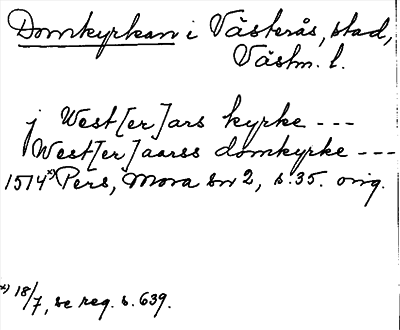 Domkyrkan i Västerås, stad,
Västm. l.
j West[er]ars kyrke ---
West[er]aarss domkyrke ---
1514 x) Pers, Mora sn 2, s. 35. orig.
x) 18/7, se reg. s. 639.